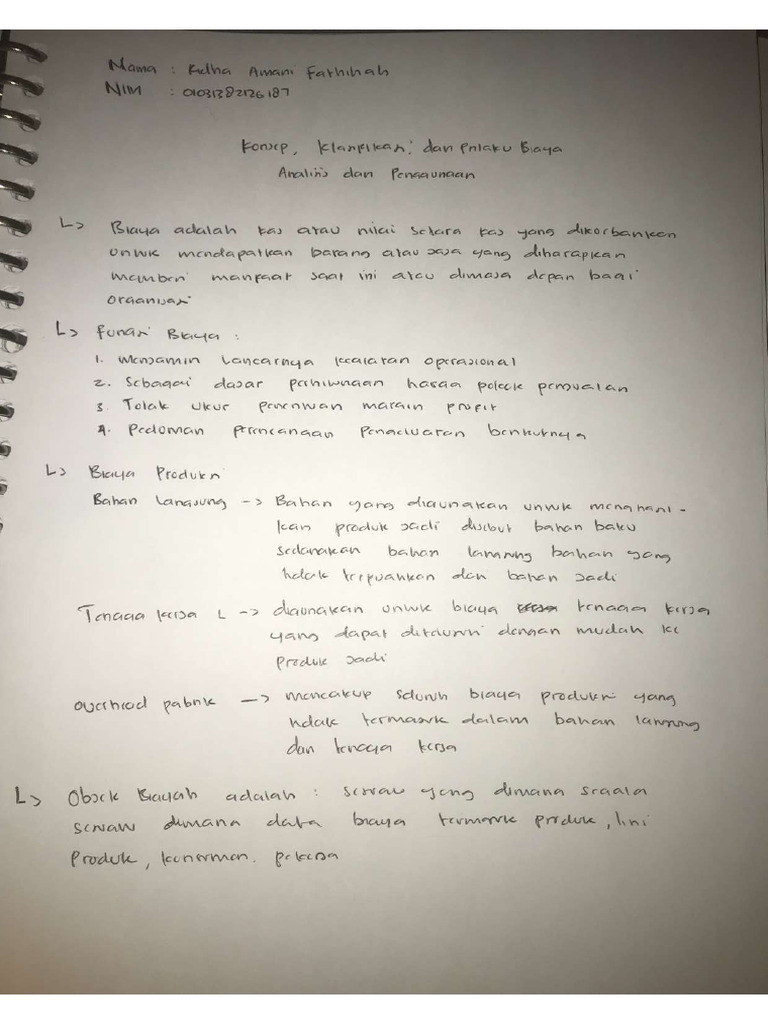 Nama : Ridha Amani Fathihah
NIM : 01031382126187
Konsep, Klasifikasi, dan Prilaku Biaya
Analisis dan Penggunaan
L> Biaya adalah kas atau nilai setara kas yang dikorbankan
untuk mendapatkan barang atau jasa yang diharapkan
memberi manfaat saat ini atau dimasa depan bagi
organisasi
L> Fungsi Biaya :
1. Menjamin lancarnya kegiatan operasional
2. Sebagai dasar perhitungan harga pokok penjualan
3. Tolak ukur penentuan margin profit
4. Pedoman perencanaan pengeluaran berikutnya
L> Biaya Produksi
Bahan Langsung -> Bahan yang digunakan untuk menghasil -
kan produk jadi disebut bahan baku
sedangkan bahan langsung bahan yang
tidak terpisahkan dan bahan jadi
Tenaga kerja L -> digunakan untuk biaya tenaga kerja
yang dapat ditelusuri dengan mudah ke
produk jadi
overhead pabrik -> mencakup seluruh biaya produksi yang
tidak termasuk dalam bahan langsung
dan tenaga kerja
L> Objek Biayah adalah : sesuatu yang dimana segala
sesuatu dimana data biaya termasuk produk, lini
Produk, konsumen, pekerja